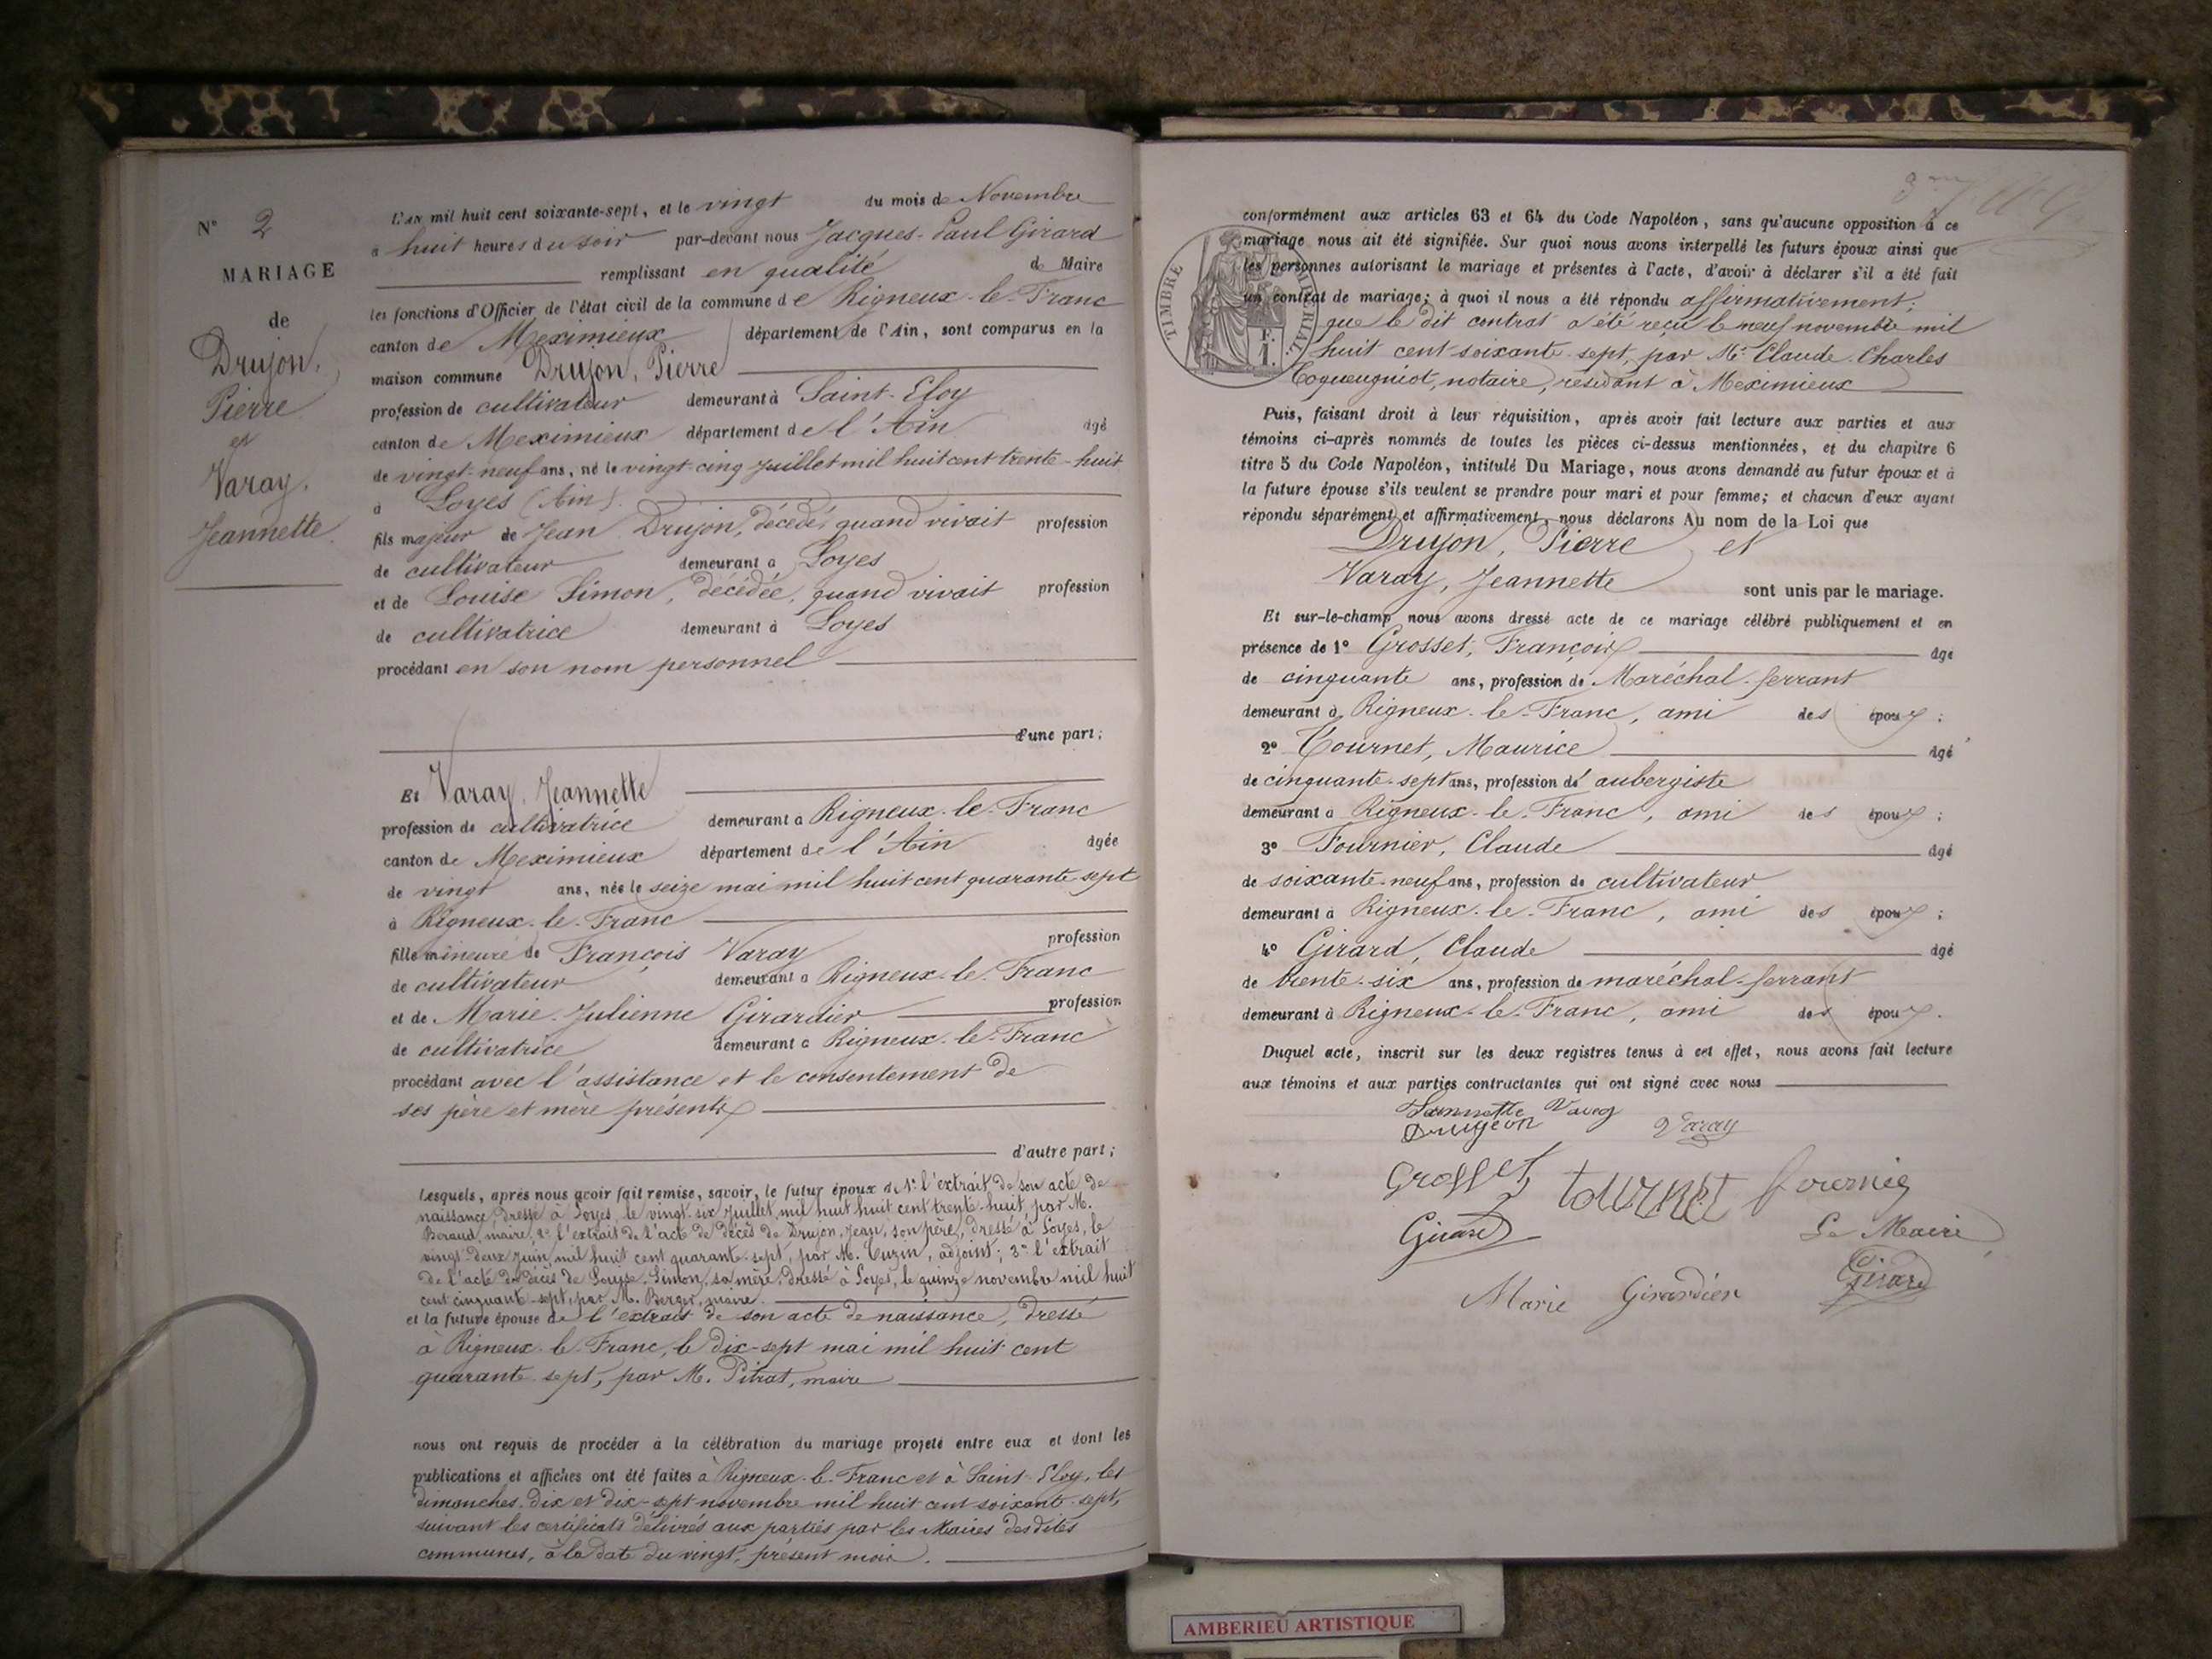 N° 2
MARIAGE
de
Drujon,
Pierre
et
Varay,
Jeannette.
L'AN mil huit cent soixante-sept, et le vingt du mois de Novembre
a huit heures du soir par-devant nous Jacques-Paul Girard
remplissant en qualité de Maire
les fonctions d'Officier de l'état civil de la commune de Rigneux-le-Franc
canton de Meximieux département de l'Ain, sont comparus en la
maison commune Drujon, Pierre
profession de cultivateur demeurant à Saint-Eloy
canton de Meximieux département de l'Ain âgé
de vingt-neuf ans, né le vingt-cinq juillet mil huit cent trente-huit
à Loyes (Ain).
fils majeur de Jean Drujon, décédé, quand vivait profession
de cultivateur demeurant a Loyes
et de Louise Simon, décédée, quand vivait profession
de cultivatrice demeurant à Loyes
procédant en son nom personnel
d'une part;
Et Varay, Jeannette
profession de cultivatrice demeurant à Rigneux-le-Franc
canton de Meximieux département de l'Ain âgée
de vingt ans, née le seize mai mil huit cent quarante-sept
à Rigneux-le-Franc
fille mineure de François Varay profession
de cultivateur demeurant a Rigneux-le-Franc
et de Marie-Julienne Girardier profession
de cultivatrice demeurant a Rigneux-le-Franc
procédant avec l'assistance et le consentement de
ses père et mère présents
d'autre part;
Lesquels, après nous avoir fait remise, savoir, le futur époux de 1° l'extrait de son acte de
naissance, dressé à Loyes, le vingt-six juillet mil huit huit cent trente-huit, par M.
Beraud, maire; 2° l'extrait de l'acte de décès de Drujon, Jean, son père, dressé à Loyes, le
vingt-deux juin mil huit cent quarante-sept, par M. Cuzin, adjoint; 3° l'extrait
de l'acte de décès de Louise Simon, sa mère, dressé à Loyes, le quinze novembre mil huit
cent cinquante-sept, par M. Berger, maire.
et la future épouse de l'extrait de son acte de naissance, dressé
à Rigneux-le-Franc, le dix-sept mai mil huit cent
quarante-sept, par M. Pitrat, maire
nous ont requis de procéder à la célébration du mariage projeté entre eux et dont les
publications et affiches ont été faites à Rigneux-le-Franc et à Saint-Eloy, les
dimanches, dix et dix-sept novembre mil huit cent soixante-sept,
suivant les certificats délivrés aux parties par les Maires desdites
communes, à la date du vingt, présent mois.
TIMBRE IMPERIAL
1 F.
conformément aux articles 63 et 64 du Code Napoléon, sans qu'aucune opposition à ce
mariage nous ait été signifiée. Sur quoi nous avons interpellé les futurs époux ainsi que
les personnes autorisant le mariage et présentes à l'acte, d'avoir à déclarer s'il a été fait
un contrat de mariage; à quoi il nous a été répondu affirmativement;
que le dit contrat a été reçu le neuf novembre mil
huit cent soixante-sept, par Me Claude-Charles
Coqueugniot, notaire, résidant à Meximieux
Puis, faisant droit à leur réquisition, après avoir fait lecture aux parties et aux
témoins ci-après nommés de toutes les pièces ci-dessus mentionnées, et du chapitre 6
titre 5 du Code Napoléon, intitulé Du Mariage, nous avons demandé au futur époux et à
la future épouse s'ils veulent se prendre pour mari et pour femme; et chacun d'eux ayant
répondu séparément et affirmativement, nous déclarons Au nom de la Loi que
Drujon, Pierre et
Varay, Jeannette sont unis par le mariage.
Et sur-le-champ nous avons dressé acte de ce mariage célébré publiquement et en
présence de 1° Grosset, François âgé
de cinquante ans, profession de Maréchal-ferrant
demeurant à Rigneux-le-Franc, ami des époux;
2° Tournet, Maurice âgé
de cinquante-sept ans, profession de aubergiste
demeurant a Rigneux-le-Franc, ami des époux;
3° Fournier, Claude âgé
de soixante-neuf ans, profession de cultivateur
demeurant à Rigneux-le-Franc, ami des époux;
4° Girard, Claude âgé
de trente-six ans, profession de maréchal-ferrant
demeurant à Rigneux-le-Franc, ami des époux.
Duquel acte, inscrit sur les deux registres tenus à cet effet, nous avons fait lecture
aux témoins et aux parties contractantes qui ont signé avec nous
Jannette Varay
Drugeon Varay
Grosset tournet fournier
Girard Le Maire
Marie Girardier Girard
AMBERIEU ARTISTIQUE